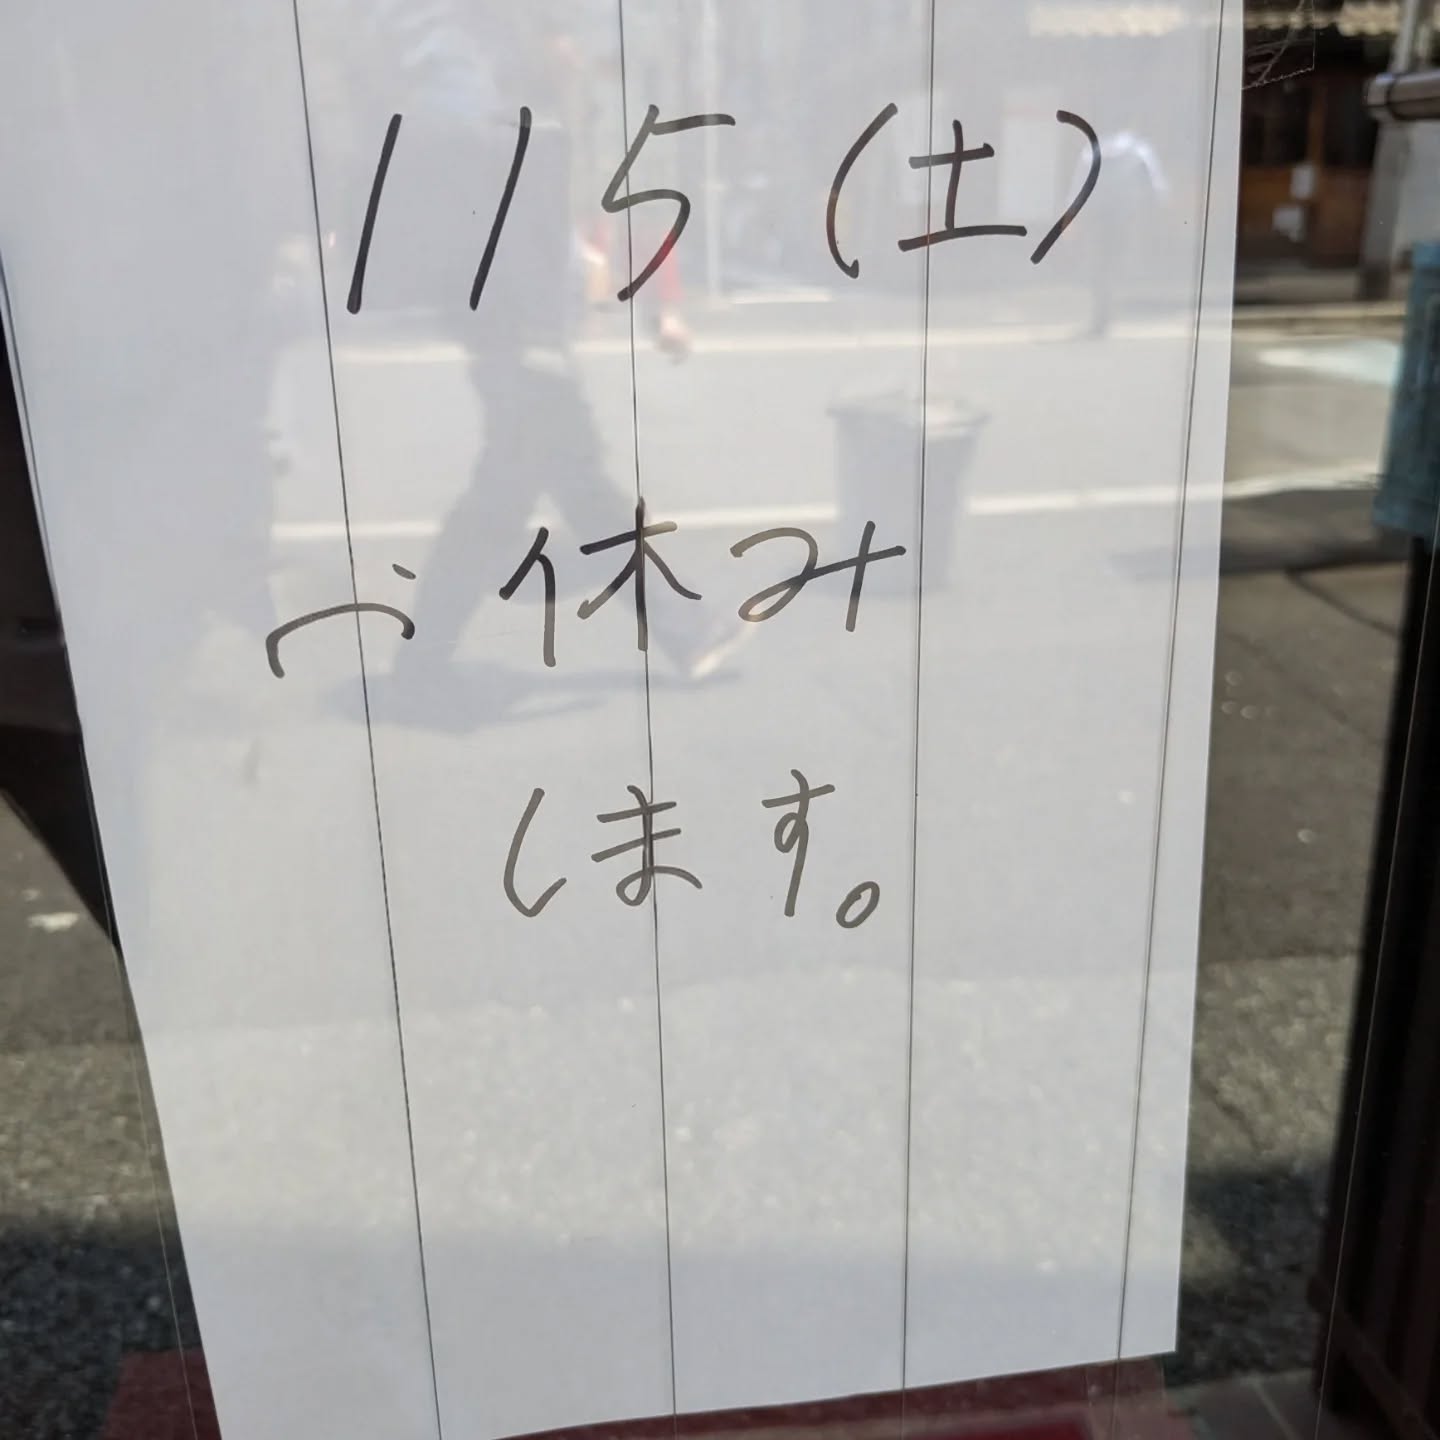 1/5(土)
休み
します。